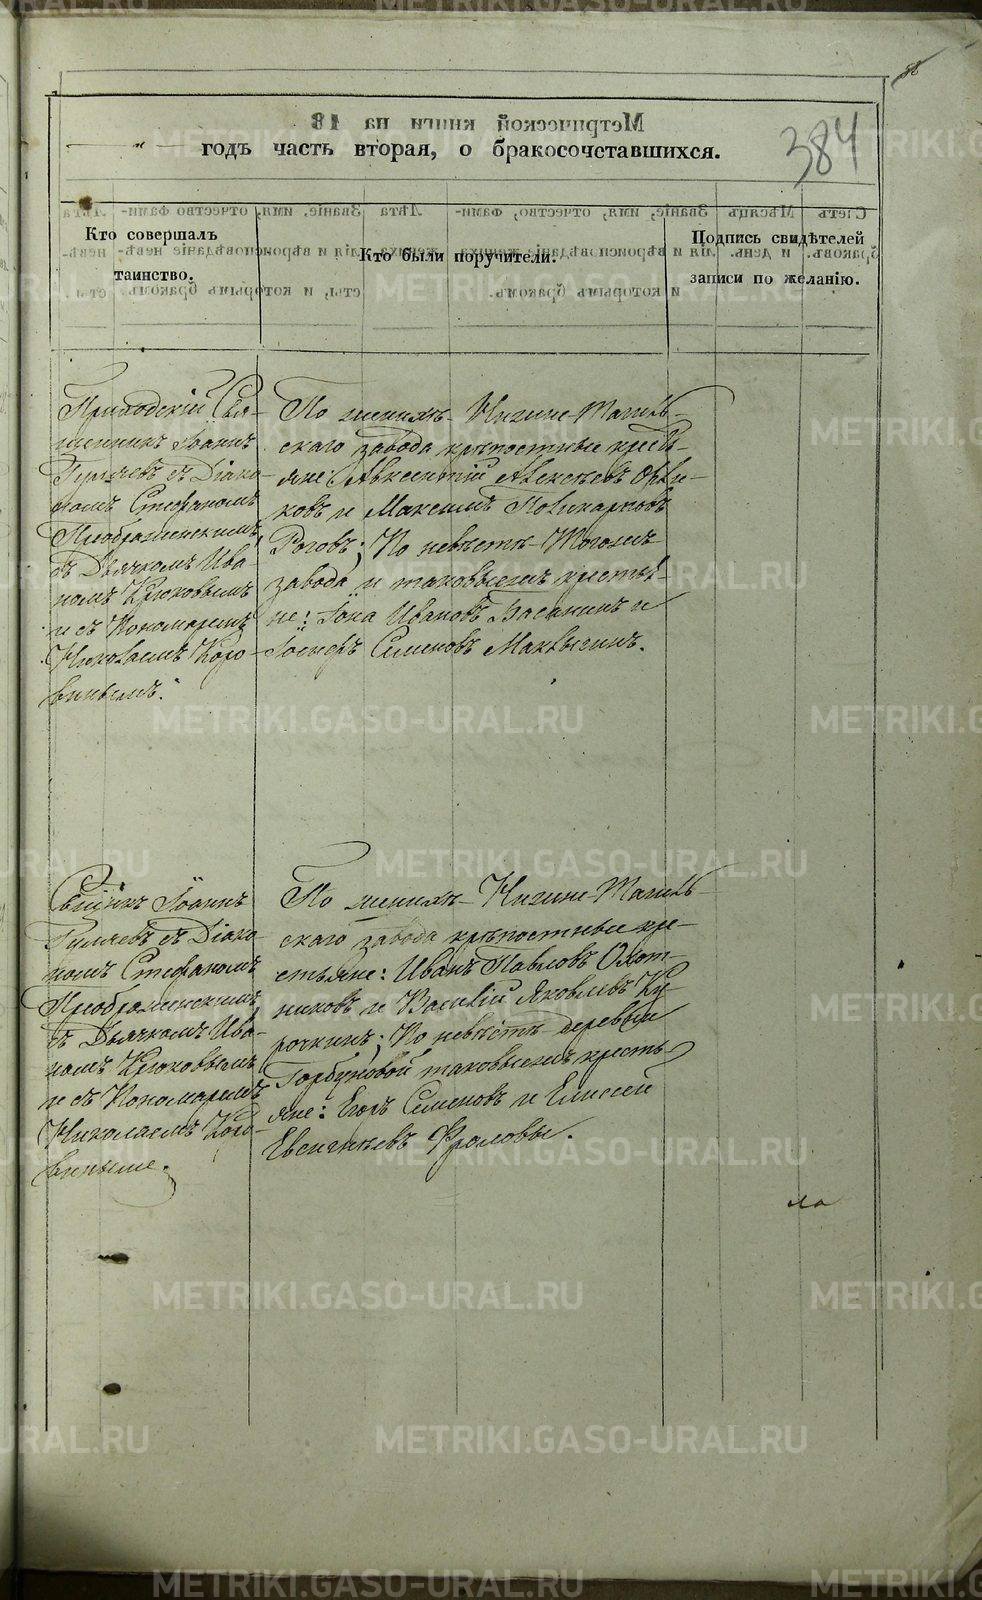 384
годъ часть вторая, о бракосочставшихся.
Кто совершалъ
таинство.
Кто были поручители.
Подпись свидѣтелей
записи по желанію.
Приходскій Свя-
щенникъ Іоаннъ
Гуляевъ съ Діако-
номъ Стефаномъ
Преображенскимъ,
съ Дьячкомъ Ива-
номъ Крюковымъ
и съ Пономаремъ
Николаемъ Коро-
винымъ.
По женихѣ Нижне-Тагиль-
скаго завода крѣпостные кресть-
яне: Авксентій Алексѣевъ
ковъ и Максимъ Поликарповъ
Роговъ; По невѣстѣ Тогожъ
завода и таковыежъ крестья-
не: Іона Ивановъ и
Семеновъ
Свщнкъ Іоаннъ
Гуляевъ съ Діако-
номъ Стефаномъ
Преображенскимъ,
съ Дьячкомъ Ива-
номъ Крюковымъ
и съ Пономаремъ
Николаемъ Коро-
винымъ.
По женихѣ Нижне-Тагиль-
скаго завода крѣпостные кре-
стьяне: Иванъ Павловъ Охот-
никовъ и Василій Яковлевъ Ку-
рочкинъ; По невѣстѣ деревни
Горбуновой таковыежъ кресть-
яне: Егоръ Семеновъ и Елисей
Евсигнѣевъ Фроловы.
ла
METRIKI.GASO-URAL.RU